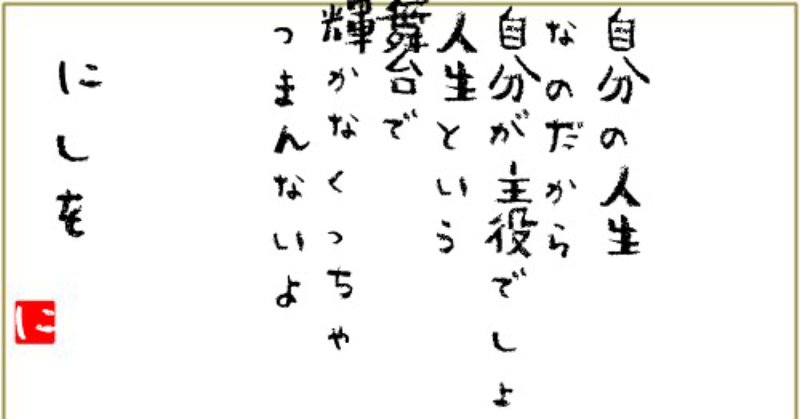 自分の人生
なのだから
自分が主役でしょ
人生という
舞台で
輝かなくっちゃ
つまんないよ
にしを
に